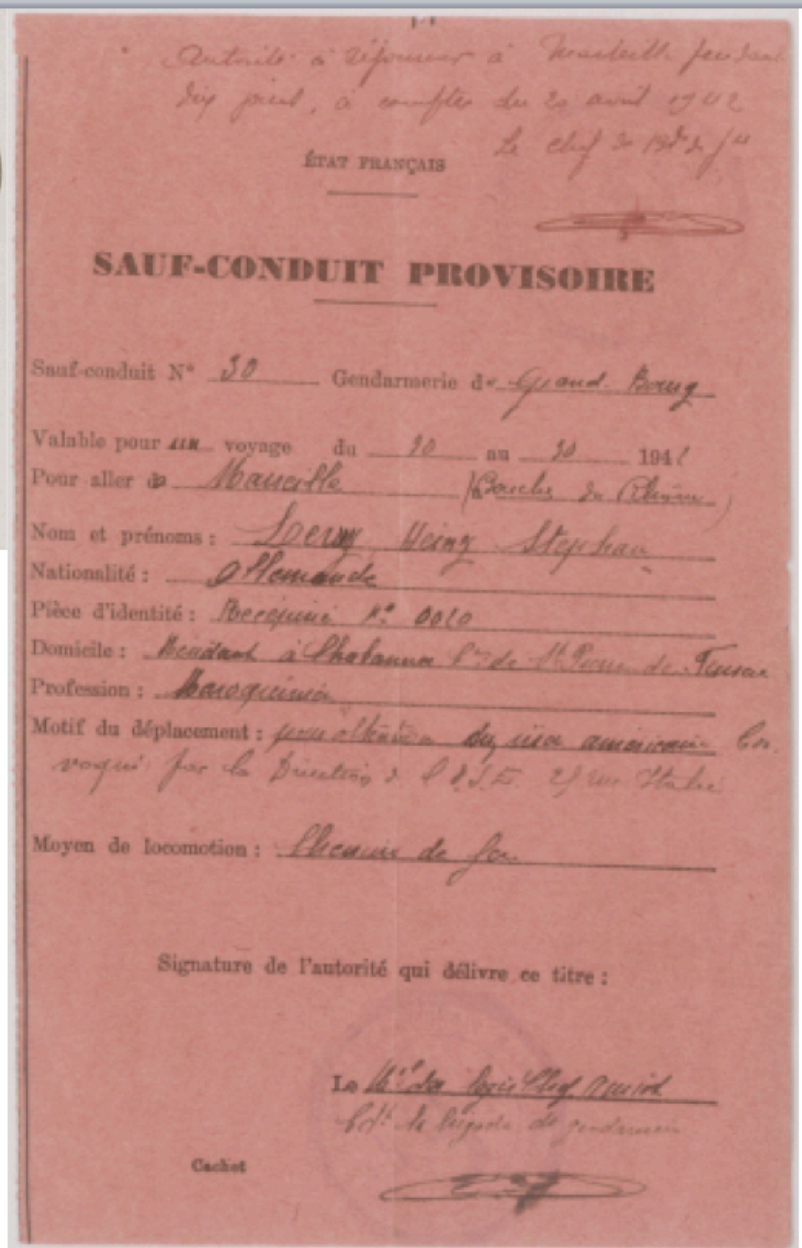 Autorité à séjourner à Marseille pendant
dix jours, à compter du 20 avril 1942
Le chef de
ÉTAT FRANÇAIS
SAUF-CONDUIT PROVISOIRE
Sauf-conduit N° 30 Gendarmerie de Grand-Bourg
Valable pour un voyage du 20 au 30 1942
Pour aller à Marseille (Bouches du Rhône)
Nom et prénoms : Stephan
Nationalité : Allemande
Pièce d'identité : Récépissé N°
Domicile : Résidant à Chabannes Cne de St Pierre de Fursac
Profession : Maroquinier
Motif du déplacement : pour obtention du visa américain Con
voqué par la Direction de l'O.S.E. 25 rue Italie
Moyen de locomotion : Chemin de fer
Signature de l'autorité qui délivre ce titre :
Le Mal des logis Chef
Cdt la brigade de gendarmerie
Cachet